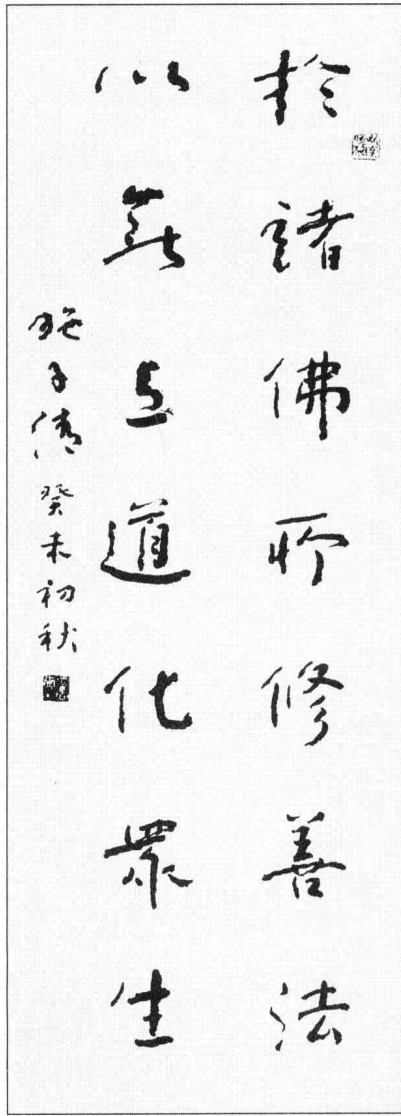 於諸佛所修善法
以無上道化眾生
施子清 癸未初秋